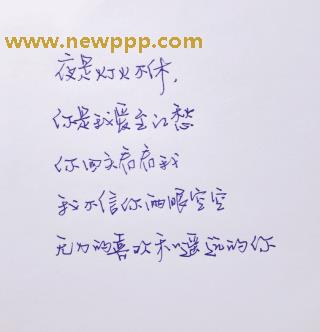 www.newppp.com
夜是灯火不休,
你是我爱至订愁
你回头看看我
我不信你两眼空空
无为的喜欢和遥远的你